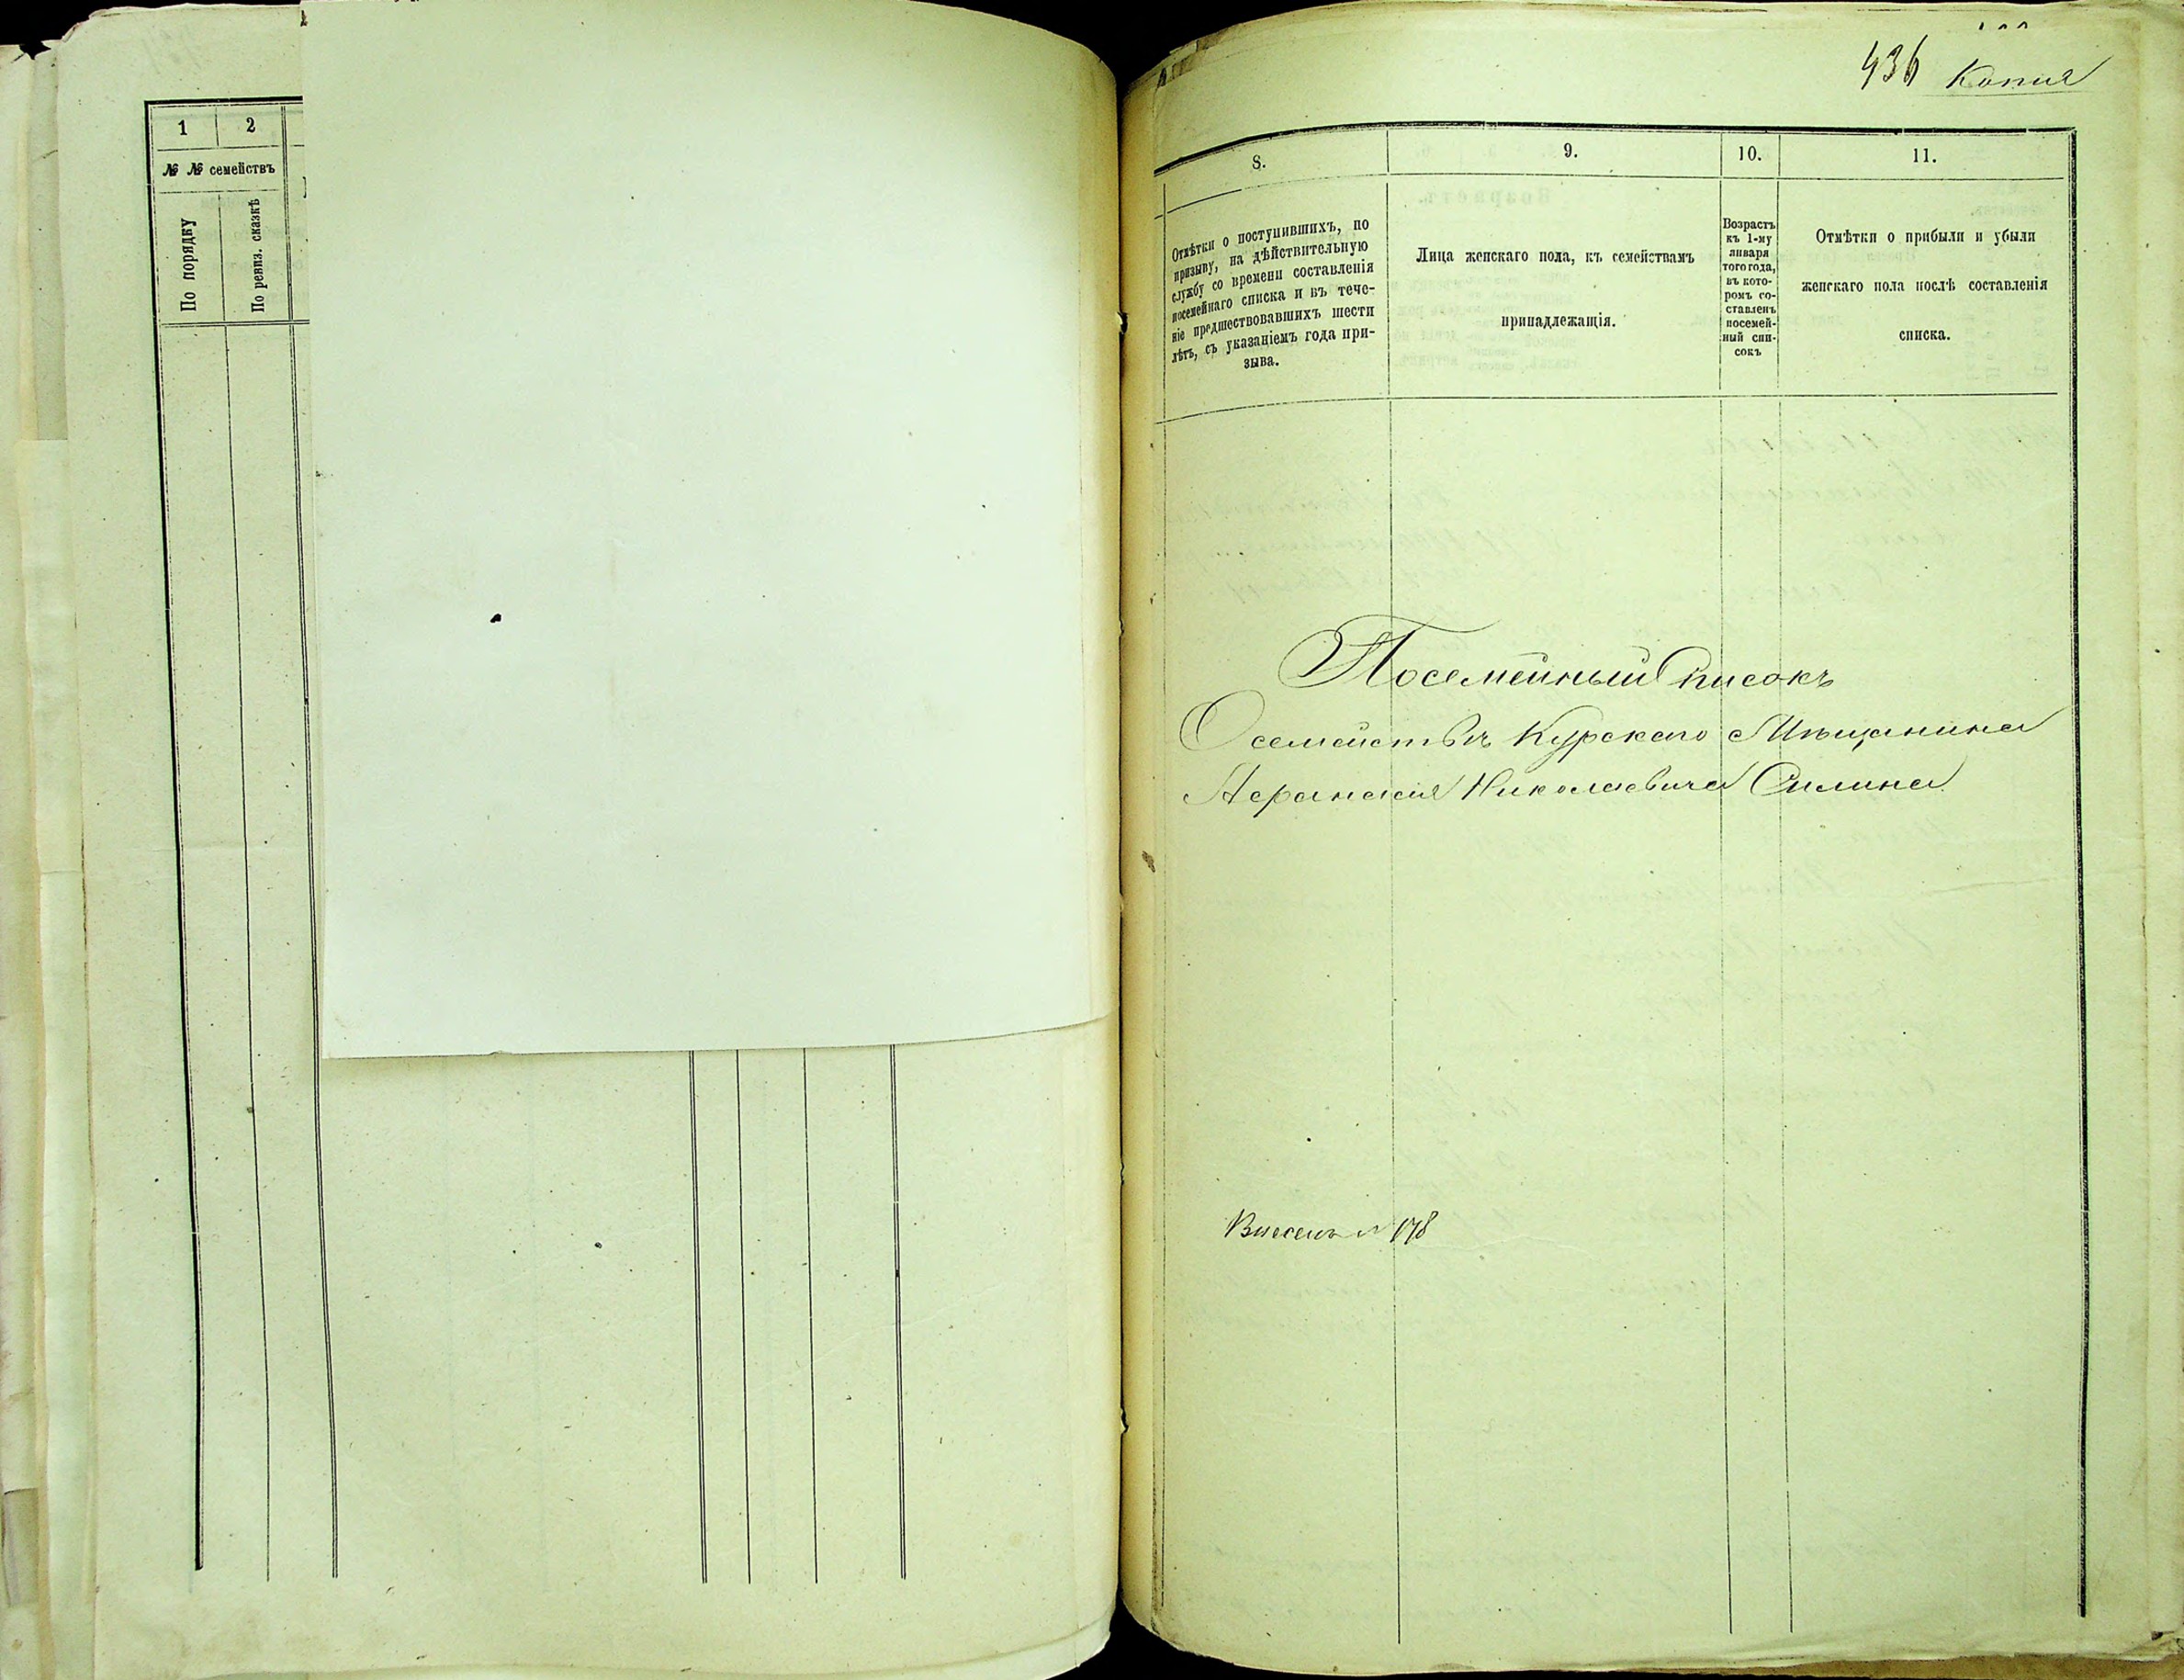 1
2
№ № семействъ
По порядку
По ревиз. сказкѣ
436 Копия
8.
9.
10.
11.
Отмѣтки о поступившихъ, по
призыву, на дѣйствительную
службу со времени составленія
посемейнаго списка и въ тече-
ніе предшествовавшихъ шести
лѣтъ, съ указаніемъ года при-
зыва.
Лица женскаго пола, къ семействамъ
принадлежащія.
Возрастъ
къ 1-му
января
того года,
въ кото-
ромъ со-
ставленъ
посемей-
ный спи-
сокъ
Отмѣтки о прибыли и убыли
женскаго пола послѣ составленія
списка.
Посемейный Списокъ
О семействѣ Курскаго Мѣщанина
Афанасия Николаевича Силина
Внесенъ № 178